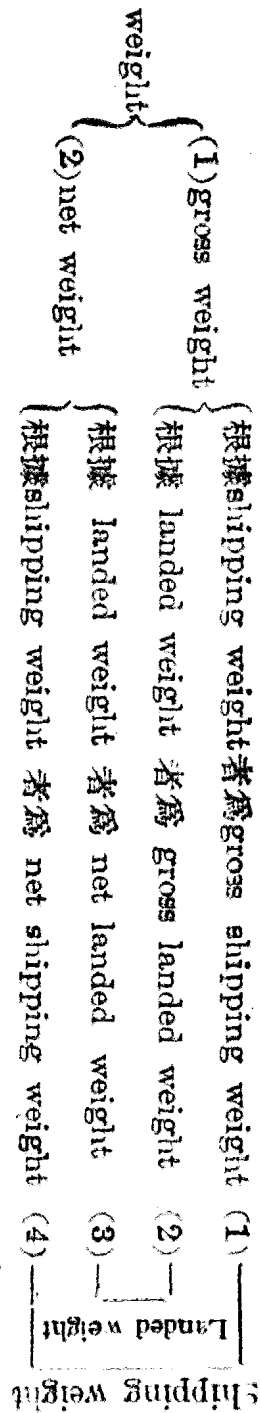 weight
(1)gross weight
(2)net weight
根據shipping weight者爲gross shipping weight (1)
根據 landed weight 者爲 gross landed weight (2)
根據 landed weight 者爲 net landed weight (3)
根據shipping weight 者爲 net shipping weight (4)
Landed weight
Shipping weight